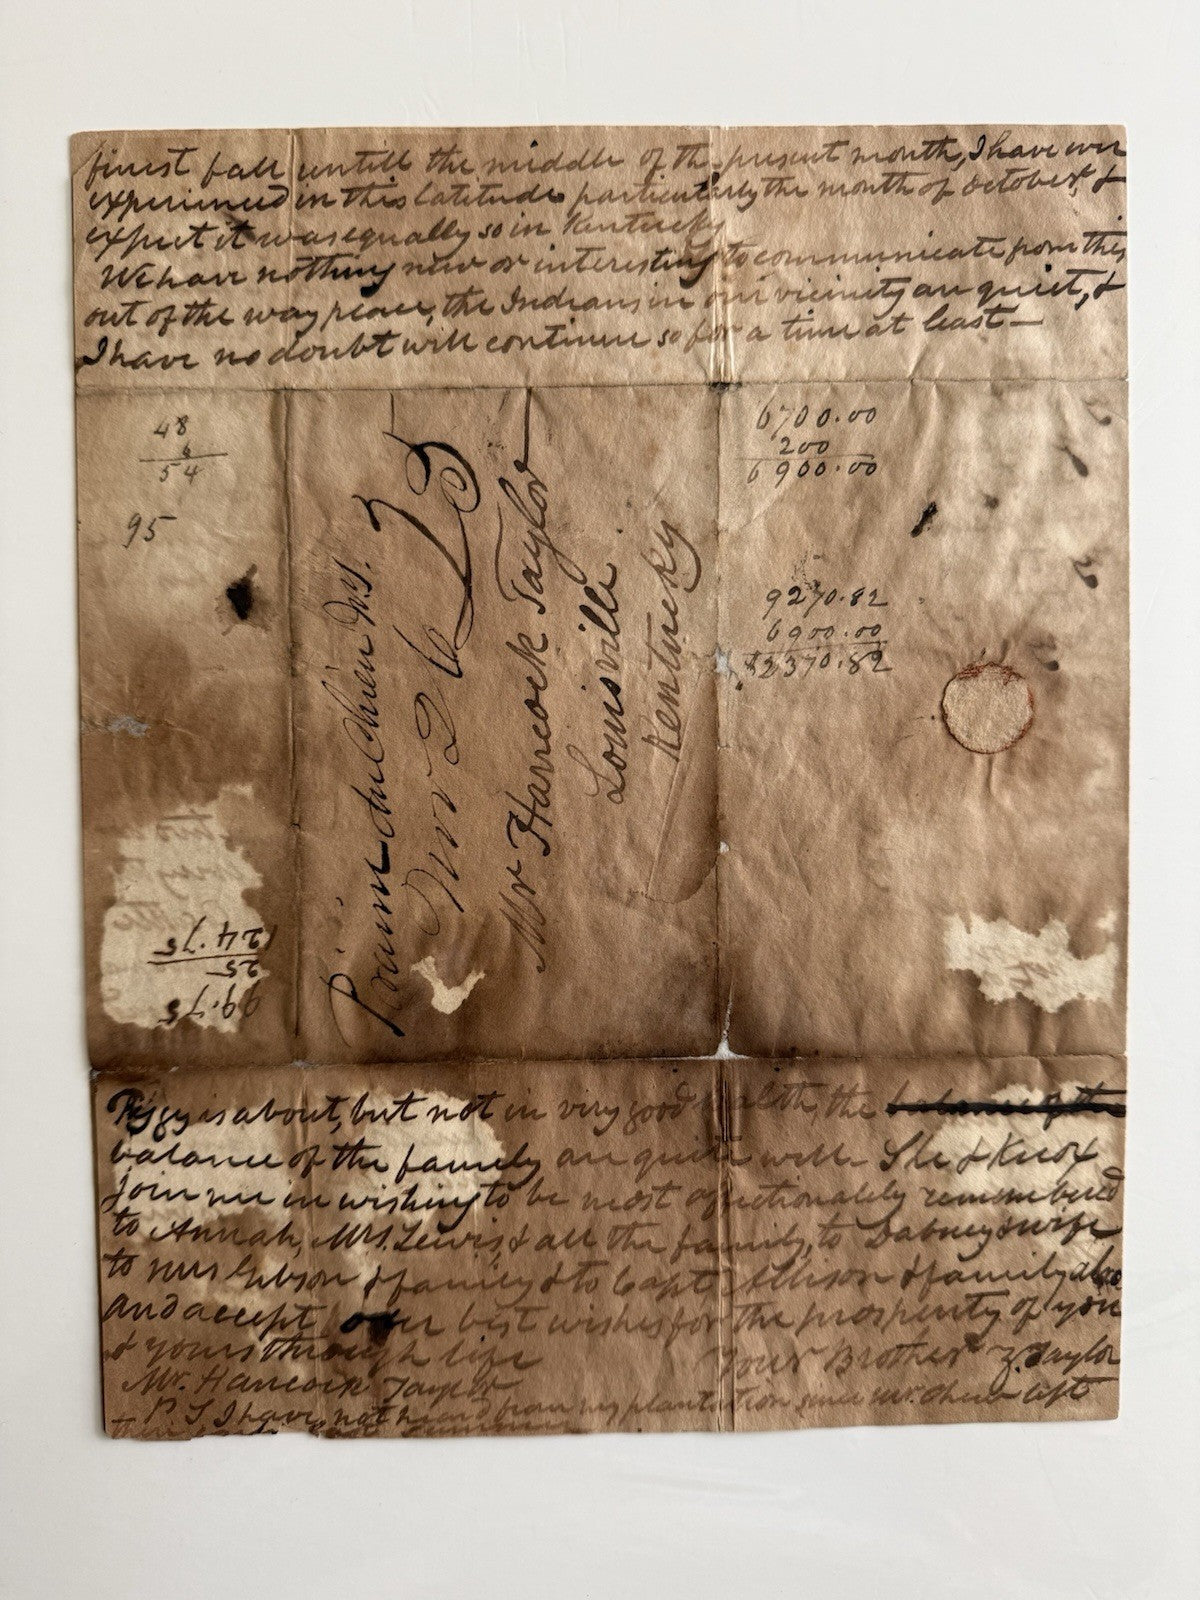 finest fall untill the middle of the present month, I have ever
experienced in this latitude particularly the month of October, &
expect it was equally so in Kentucky
We have nothing new or interesting to communicate from this
out of the way place, the Indians in our vicinity are quiet, &
I have no doubt will continue so for a time at least—
48
6
54
95
Prairie du Chien
25
Mr Hancock Taylor
Louisville
Kentucky
6700.00
200
6900.00
9270.82
6900.00
$2370.82
99.75
25
124.75
Peggy is about, but not in very good health, the balance of the
balance of the family are quite well— She & Knox
join me in wishing to be most afectionately remembered
to Annah, Mrs. Lewis, & all the family, to Dabney & wife
to Mrs Gibson & family & to Capt Allison & family also
and accept our best wishes for the prosperity of you
& yours through life
Your Brother Z. Taylor
Mr. Hancock Taylor
— P. S I have not heard from my plantation since Mr. Chew left